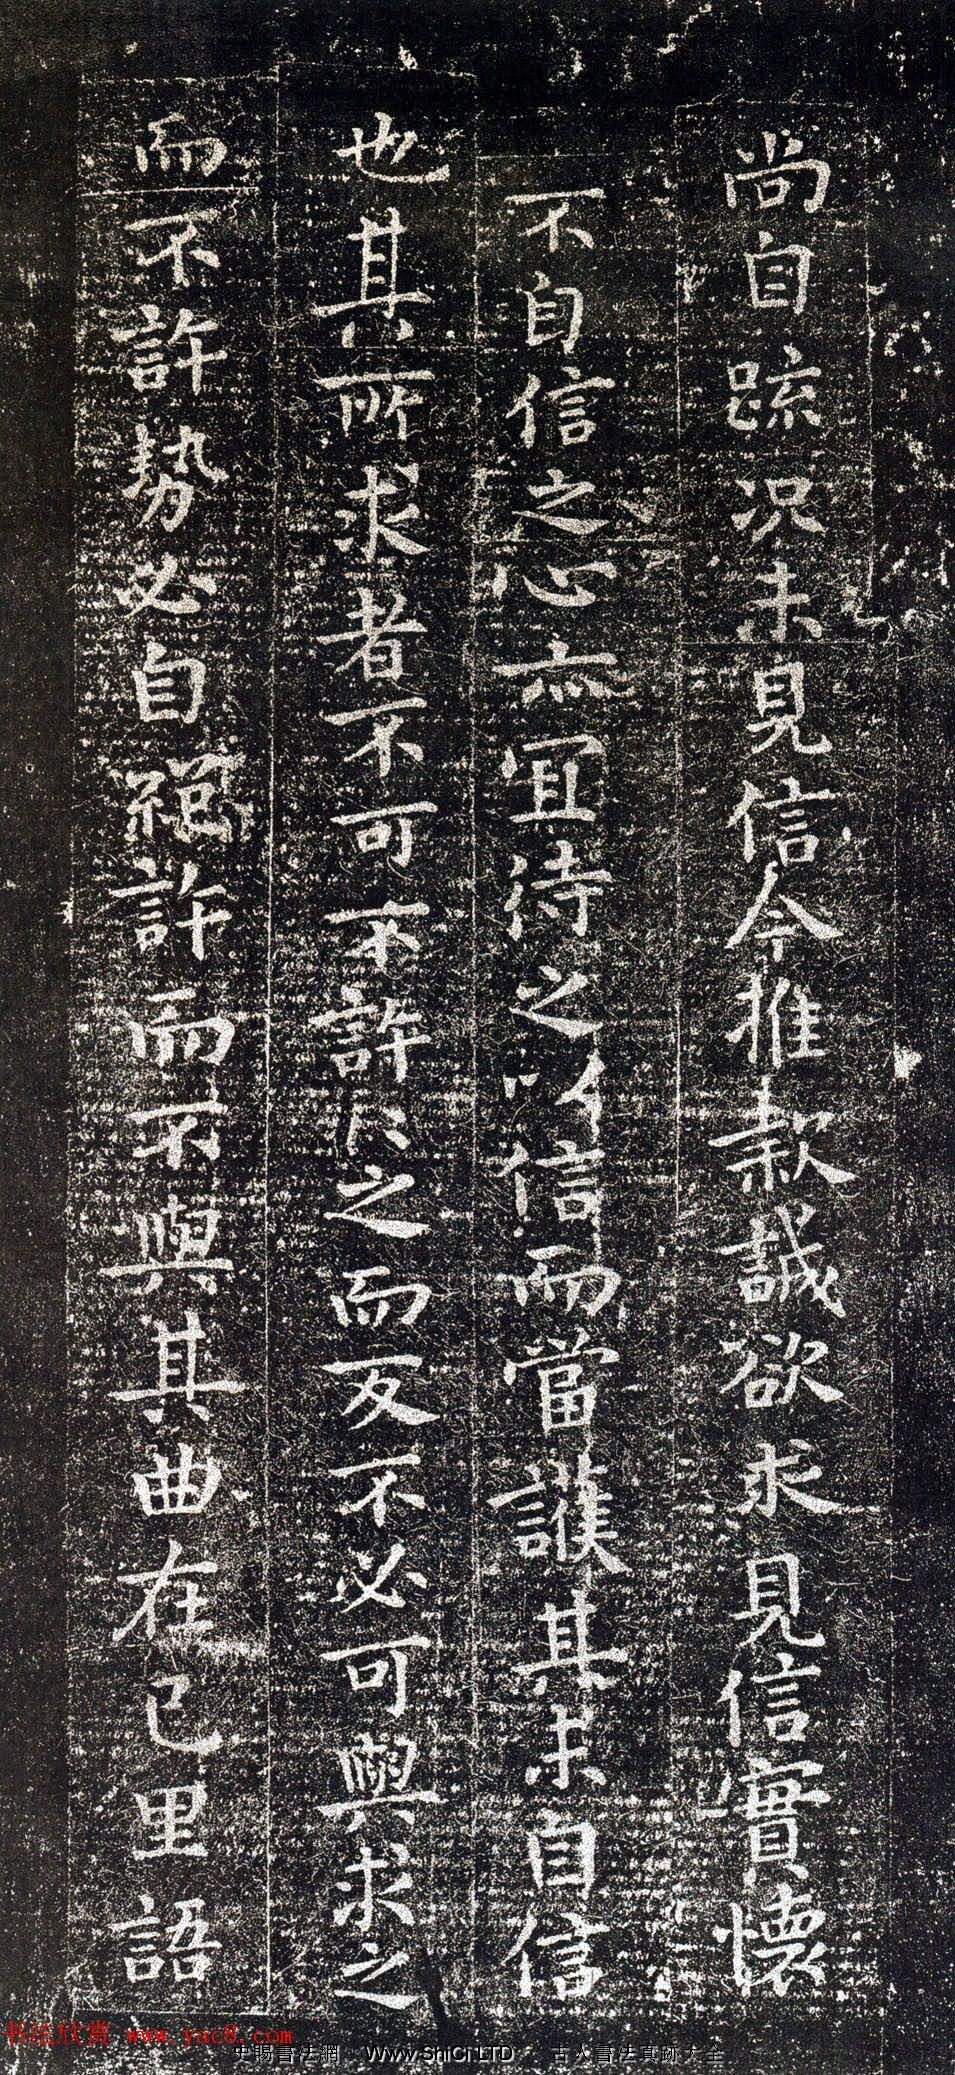 尚自疏况未見信今推款誠欲求見信實懷
不自信之心亦宜待之以信而當護其未自信
也其所求者不可不許〻之而反不必可與求之
而不許勢必自絕許而不與其曲在己里語
书法欣赏 www.yac8.com
史賜書法網 Www.ShiCi.LTD 古人書法真跡大全